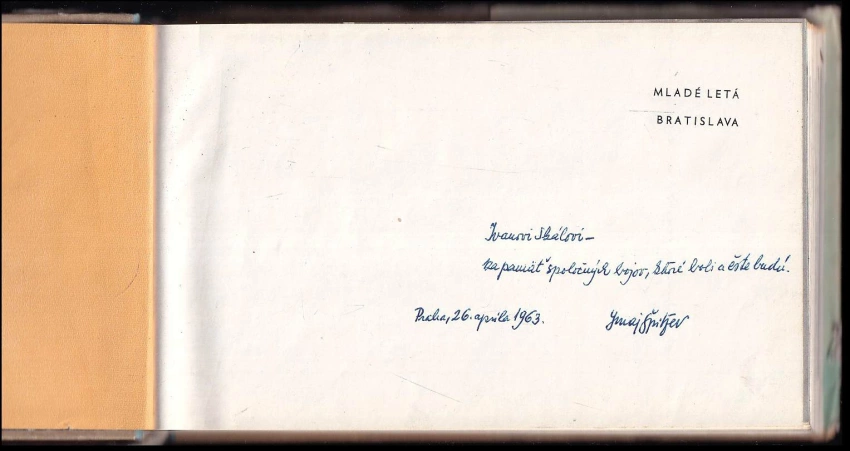 MLADÉ LETÁ
BRATISLAVA
Ivanovi Skálovi –
na pamäť spoločných bojov, ktoré boli a ešte budú.
Praha, 26. apríla 1963. Juraj Špitzer